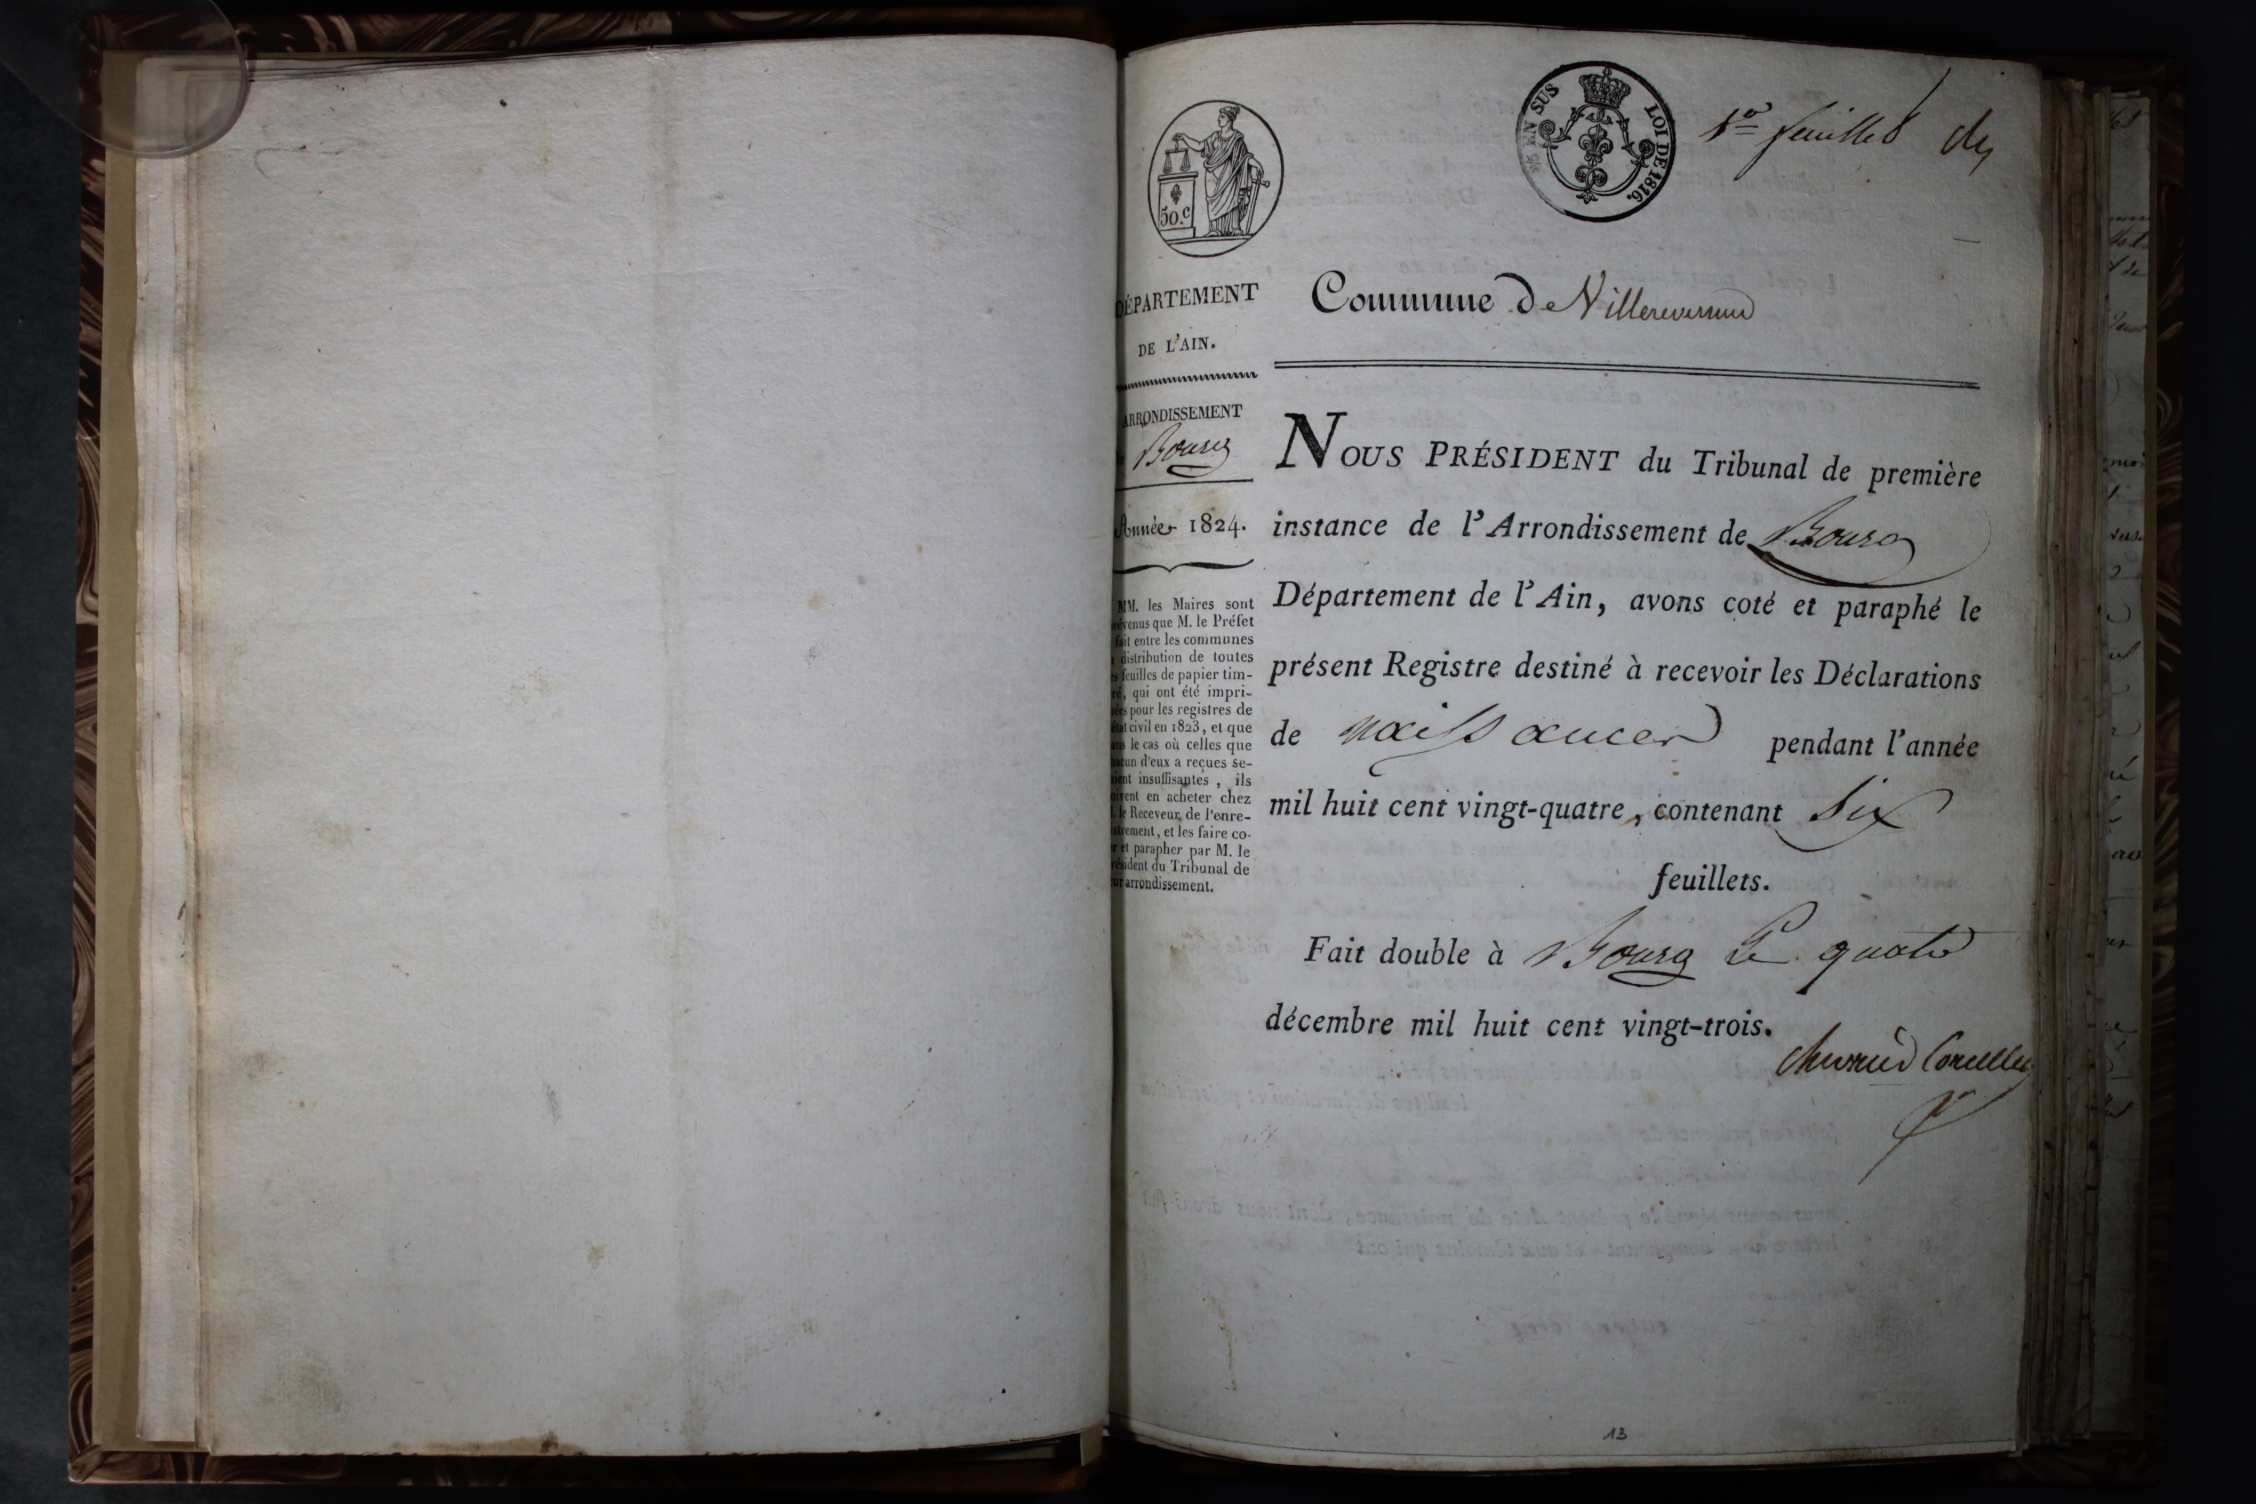 50.c
EN SUS LOI DE 1816.
1er feuillet
DÉPARTEMENT
DE L'AIN.
ARRONDISSEMENT
Bourg
Année 1824.
MM. les Maires sont
prévenus que M. le Préfet
fait entre les communes
distribution de toutes
feuilles de papier tim-
bré, qui ont été impri-
mées pour les registres de
état civil en 1823, et que
dans le cas où celles que
chacun d'eux a reçues se-
raient insuffisantes, ils
doivent en acheter chez
le Receveur de l'enre-
gistrement, et les faire co-
ter et parapher par M. le
Président du Tribunal de
leur arrondissement.
Commune de Villereversure
NOUS PRÉSIDENT du Tribunal de première
instance de l'Arrondissement de Bourg
Département de l'Ain, avons coté et paraphé le
présent Registre destiné à recevoir les Déclarations
de naissances pendant l'année
mil huit cent vingt-quatre, contenant six
feuillets.
Fait double à Bourg le quatre
décembre mil huit cent vingt-trois.
Chevrier Corcelles
13